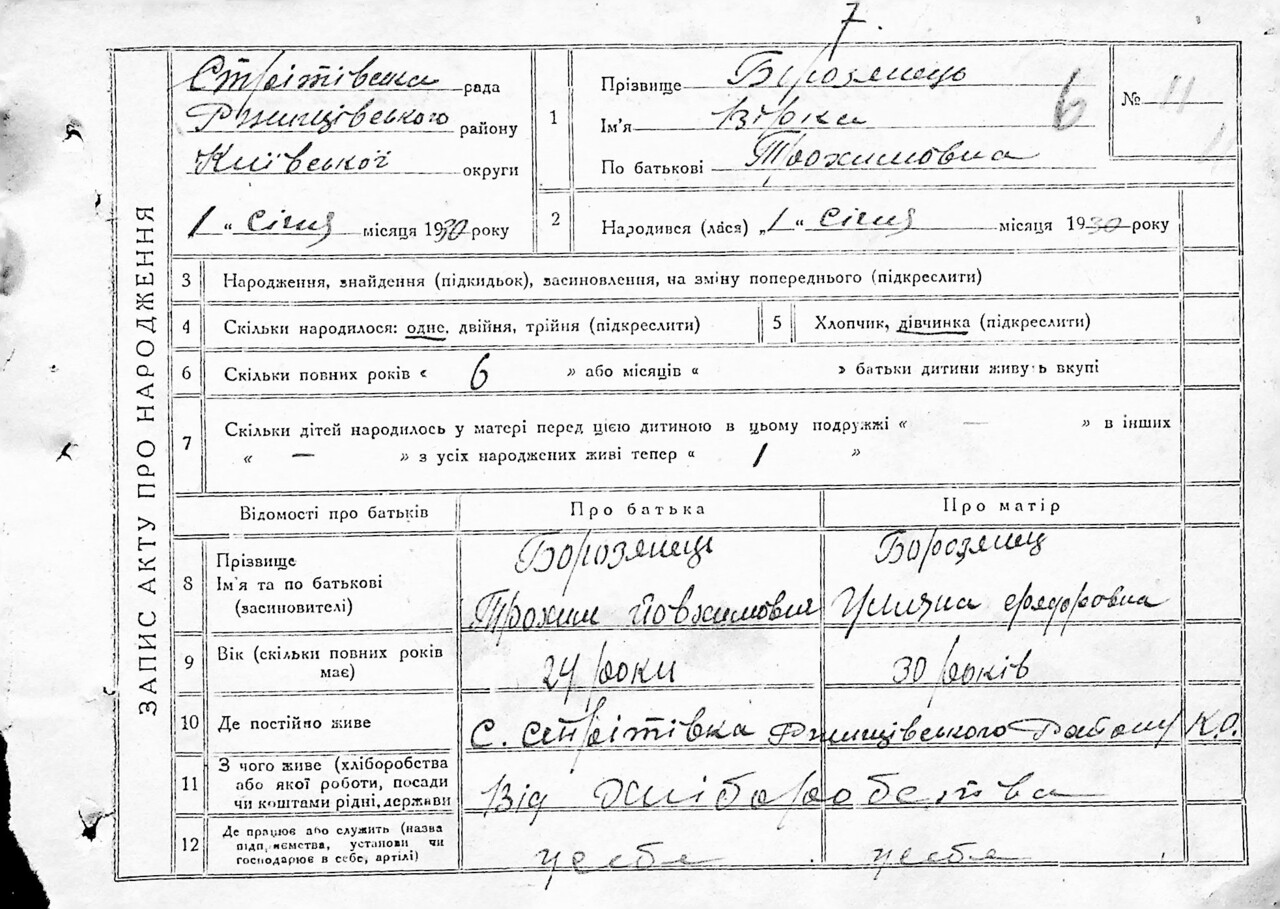 7.
Стрітівська рада
Ржищівського району
Київської округи
1 „ січня місяця 1930 року
1
Прізвище Борозянець
Ім'я Вірка
По батькові Трохимовна
6
№ 11
11
2
Народився (лася) „1“ січня місяця 1930 року
ЗАПИС АКТУ ПРО НАРОДЖЕННЯ
3 Народження, знайдення (підкидьок), засиновлення, на зміну попереднього (підкреслити)
4 Скільки народилося: одне, двійня, трійня (підкреслити) 5 Хлопчик, дівчинка (підкреслити)
6 Скільки повних років « 6 » або місяців « » батьки дитини живуть вкупі
7 Скільки дітей народилось у матері перед цією дитиною в цьому подружжі « — » в інших
« — » з усіх народжених живі тепер « 1 »
Відомості про батьків Про батька Про матір
8 Прізвище
Ім'я та по батькові
(засиновителі)
Борозянець
Трохим Йовхимович
Борозянец
Улияна Фядоровна
9 Вік (скільки повних років
має)
24 роки 30 років
10 Де постійно живе с. Стрітівка Ржищівського Району К.О.
11 З чого живе (хліборобства
або якої роботи, посади
чи коштами рідні, держави
Від Хліборобства
12 Де працює або служить (назва
підприємства, установи чи
господарює в себе, артілі)
усебе усебе